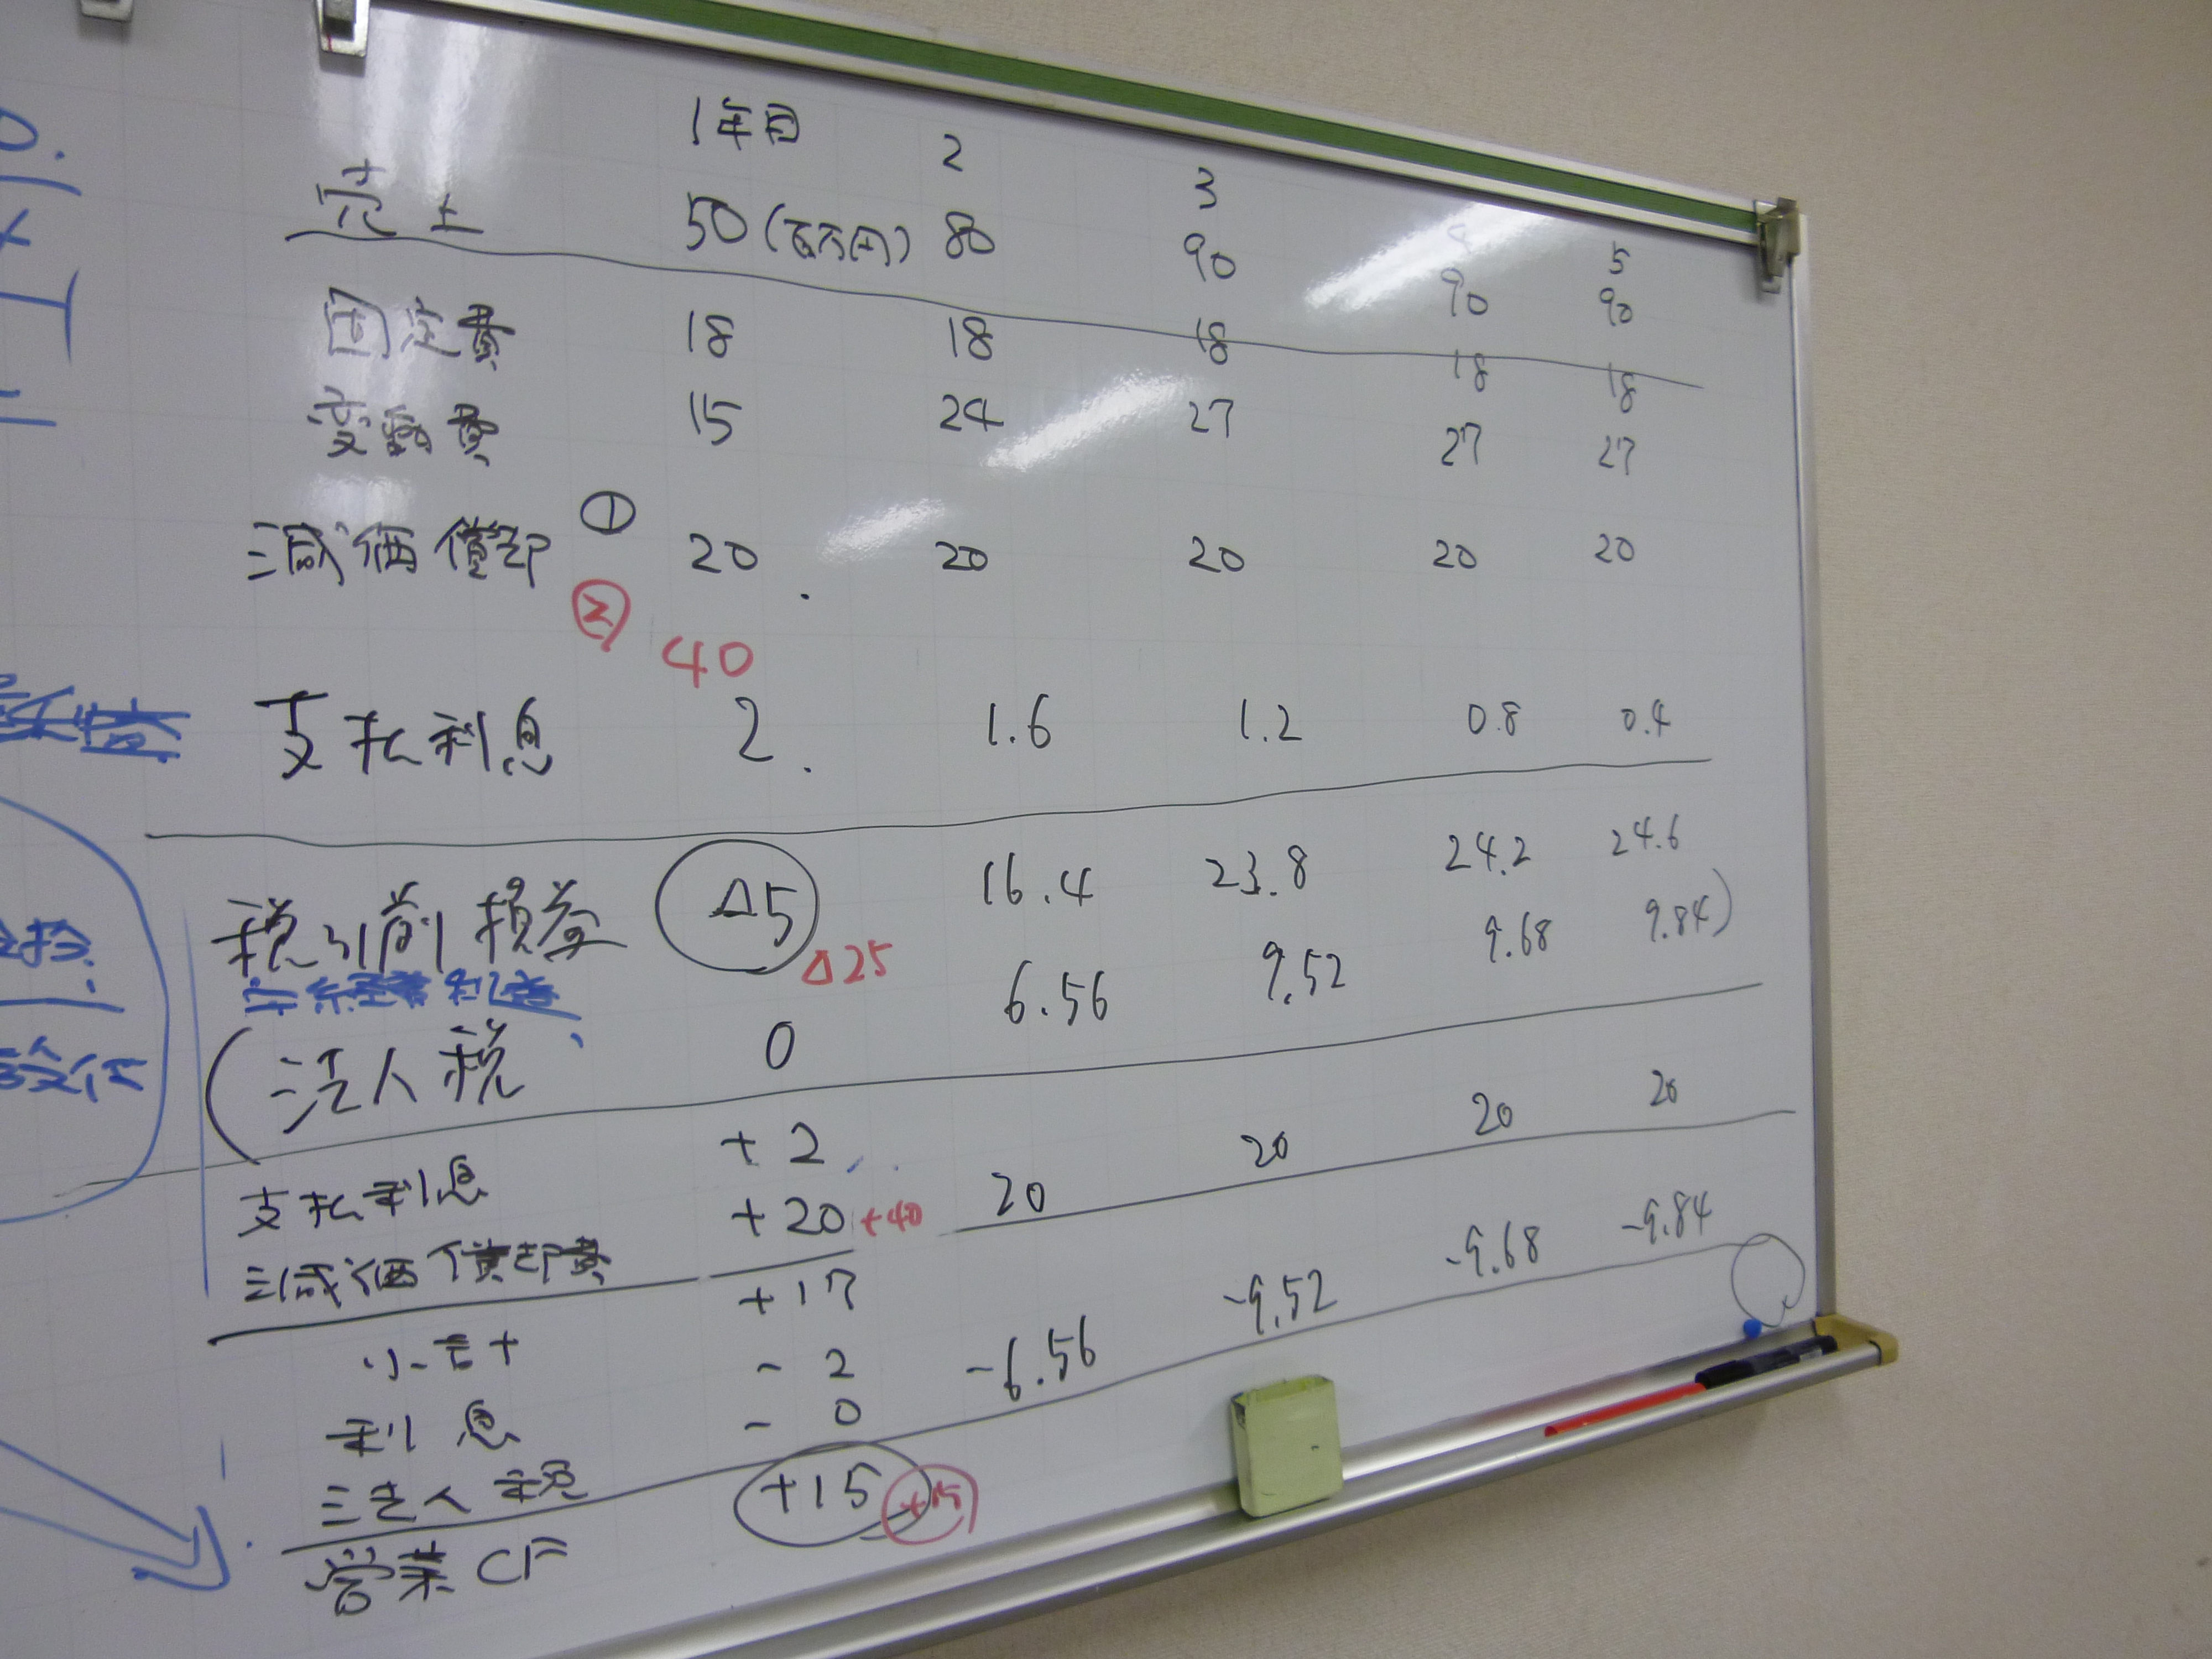 1年目 2 3 4 5
売上 50(百万円) 80 90 90 90
固定費 18 18 18 18 18
変動費 15 24 27 27 27
減価償却 ① 20 20 20 20 20
② 40
支払利息 2 1.6 1.2 0.8 0.4
税引前損益 △5 16.4 23.8 24.2 24.6
△25
(法人税 0 6.56 9.52 9.68 9.84)
支払利息 +2
減価償却費 +20 +40 20 20 20 20
小計 +17
利息 -2
法人税 -0 -6.56 -9.52 -9.68 -9.84
営業CF +15 +15